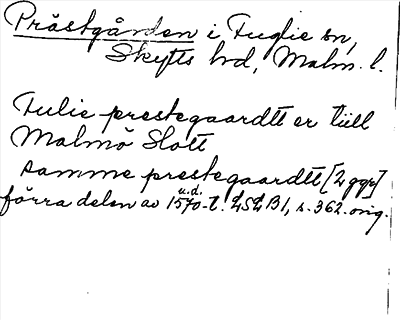 Prästgården i Fuglie sn,
Skytts hd, Malm. l.
Fulie prestegaardtt er tiill
Malmö Slott
samme prestegaardtt [2 ggr]
u.d.
förra delen av 1570-t. LSLB1, s. 362. orig.